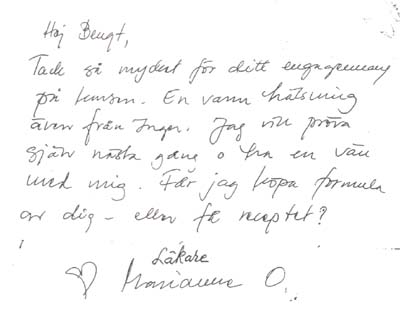 Hej Bengt,
Tack så mycket för ditt engagemang
på kursen. En varm hälsning
även från Inger. Jag vill pröva
själv nästa gång o ha en vän
med mig. Får jag köpa formula
av dig – eller få receptet?
Läkare
♡ Marianne O.